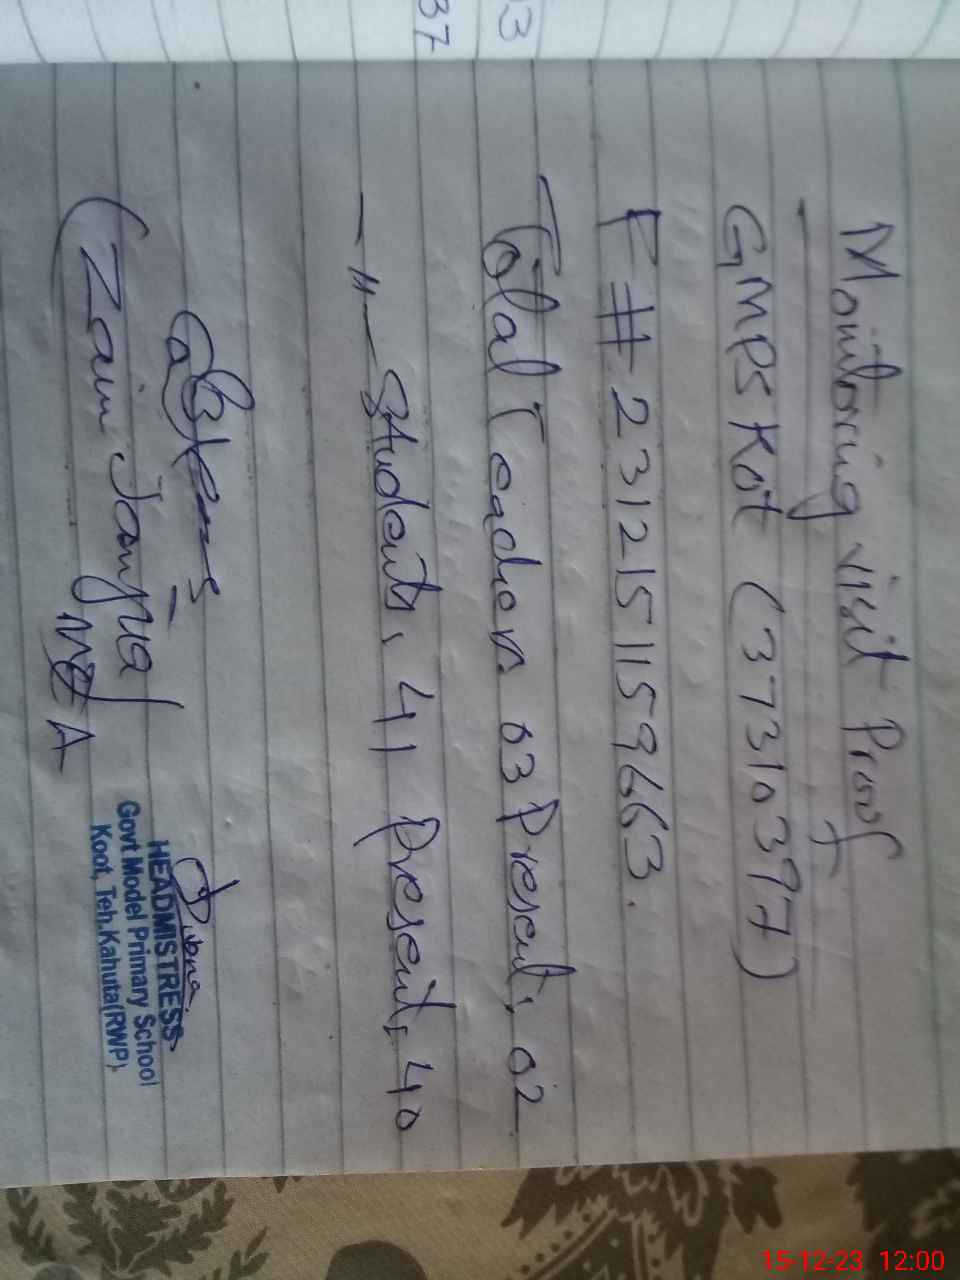 33
37
Monitoring visit Proof
GMPS Kot (37310397)
F# 2312151159663.
Total Teachers 03 Present, 02
-〃- Students, 41 Present, 40
(Zain Janjua)
MEA
HEADMISTRESS
Govt Model Primary School
Koot, Teh.Kahuta(RWP).
15-12-23 12:00